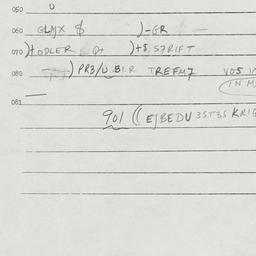 050
060 GLYX $ )-GR
070 )+ODLER Q+ )+$, S7RIFT
080 ) PR3/U.BIR TREFM7 VOS
081
901 (( EJBEDU 3ST3S KRIG